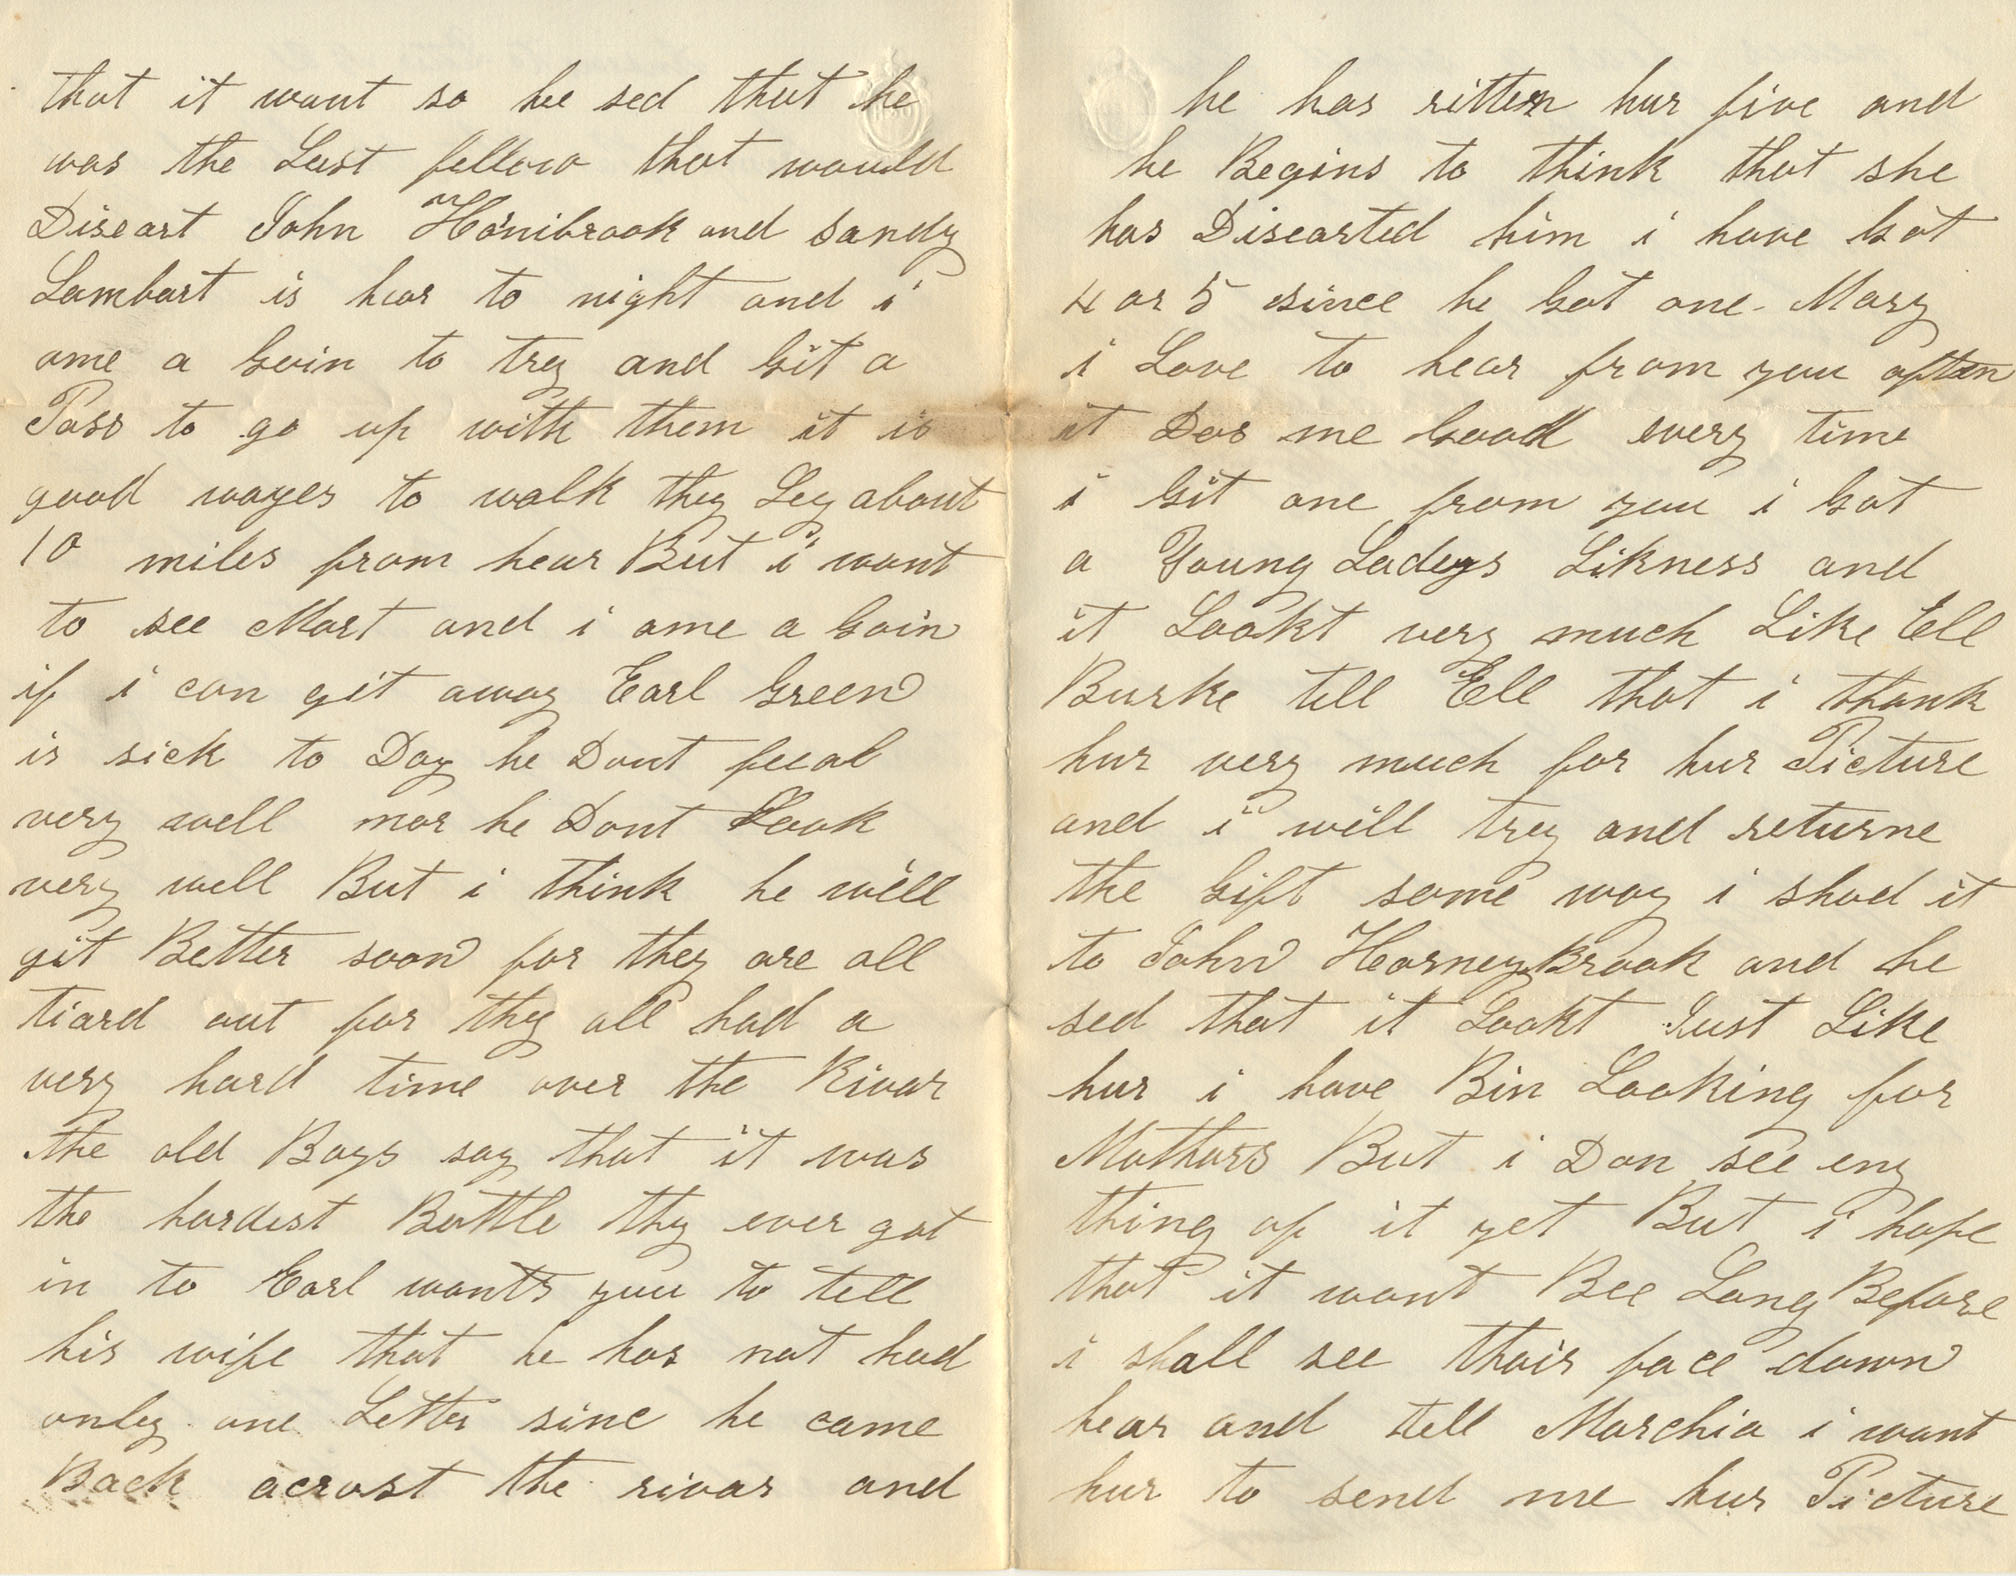 that it want so he sed that he
was the Last fellow that would
Diseart John Hornibrook and Sandy
Lambart is hear to night and i
ame a Goin to trey and Git a
Pass to go up with them it is
good wayes to walk they Ley about
10 miles from hear But i want
to see Mart and i ame a Goin
if i can git away Earl Green
is sick to Day he Dont feeal
very well nor he Dont Look
very well But i think he will
git Better soon for they are all
tiard out for they all had a
very hard time over the Rivar
the old Boys say that it was
the hardest Battle thy ever got
in to Earl wants you to tell
his wife that he has not had
onley one Letter sinc he came
Back acrost the rivar and
he has ritten hur five and
he Begins to think that she
has Disearted him i have Got
4 or 5 since he Got one Mary
i Love to hear from you often
it Dos me Good every time
i Git one from you i Got
a Young Ladeys Likness and
it Lookt very much Like Ell
Burke tell Ell that i thank
hur very much for hur Picture
and i will trey and returne
the Gift some way i shod it
to John HorneyBrook and he
sed that it Lookt Just Like
hur i have Bin Looking for
Mothurs But i Don see eny
thing of it yet But i hope
that it want Bee Long Before
i shall see thair face down
hear and tell Marchia i want
hur to send me hur Picture